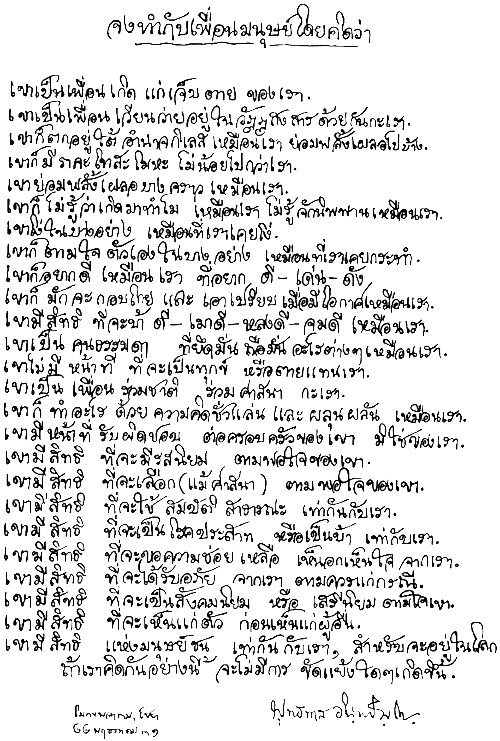 จงทำกับเพื่อนมนุษย์โดยคิดว่า
เขาเป็นเพื่อน เกิด แก่ เจ็บ ตาย ของเรา.
เขาเป็นเพื่อน เวียนว่ายอยู่ใน วัฏฏสงสาร ด้วยกันกะเรา.
เขาก็ตกอยู่ใต้ อำนาจกิเลส เหมือนเรา ย่อมพลั้งเผลอไปบ้าง.
เขาก็มี ราคะ โทสะ โมหะ ไม่น้อยไปกว่าเรา.
เขาย่อมพลั้งเผลอบางคราว เหมือนเรา.
เขาก็ไม่รู้ว่าเกิดมาทำไม เหมือนเรา ไม่รู้จักนิพพาน เหมือนเรา.
เขาโง่ในบางอย่าง เหมือนที่เราเคยโง่.
เขาก็ตามใจตัวเองในบางอย่าง เหมือนที่เราเคยกระทำ.
เขาก็อยากดี เหมือนเรา ที่อยาก ดี - เด่น - ดัง
เขาก็ มักจะกอบโกย และ เอาเปรียบ เมื่อมีโอกาสเหมือนเรา.
เขามีสิทธิ ที่จะบ้าดี - เมาดี - หลงดี - จมดี เหมือนเรา.
เขาเป็น คนธรรมดา ที่ยึดมั่น ถือมั่น อะไรต่างๆ เหมือนเรา.
เขาไม่มี หน้าที่ ที่จะเป็นทุกข์ หรือตายแทนเรา.
เขาเป็น เพื่อน ร่วมชาติ ร่วมศาสนา กะเรา.
เขาก็ ทำอะไร ด้วย ความคิดชั่วแล่น และ ผลุนผลัน เหมือนเรา.
เขามีหน้าที่ รับผิดชอบ ต่อครอบครัวของเขา มิใช่ของเรา.
เขามีสิทธิ ที่จะมีรสนิยม ตามพอใจของเขา.
เขามี สิทธิ ที่จะเลือก (แม้ศาสนา) ตามพอใจของเขา.
เขามี สิทธิ ที่จะใช้ สมบัติ สาธารณะ เท่ากันกับเรา.
เขามี สิทธิ ที่จะเป็นโรคประสาท หรือเป็นบ้า เท่ากับเรา.
เขามี สิทธิ ที่จะขอความช่วยเหลือ เห็นอกเห็นใจ จากเรา.
เขามี สิทธิ ที่จะได้รับอภัย จากเรา ตามควรแก่กรณี.
เขามี สิทธิ ที่จะเป็นสังคมนิยม หรือ เสรีนิยม ตามใจเขา.
เขามี สิทธิ ที่จะเห็นแก่ตัว ก่อนเห็นแก่ผู้อื่น.
เขามี สิทธิ แห่งมนุษย์ชน เท่ากันกับเรา, สำหรับจะอยู่ในโลก
ถ้าเราคิดกันอย่างนี้ จะไม่มีการ ขัดแย้งใดๆเกิดขึ้น.
พุทธทาส อินทปัญโญ
โมกขพลาราม, ไชยา